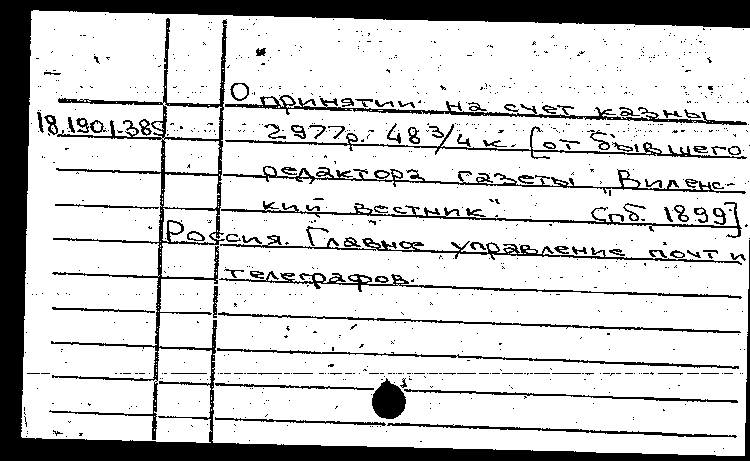 О принятии на счет казны
18.190.1.385
2977р. 48 3/4 к. [от бывшего
редактора газеты „Виленс-
кий вестник". Спб, 1899]
Россия. Главное управление почт и
телеграфов.